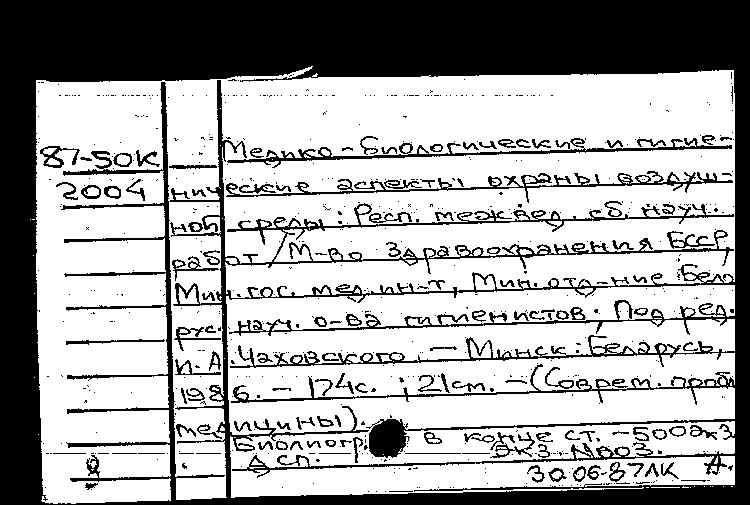 87-50К Медико-биологические и гигие-
2004 нические аспекты охраны воздуш-
ной среды: Респ. межвед. сб. науч.
работ / М-во Здравоохранения БССР,
Мин. гос. мед. ин-т, Мин. отд-ние Бело
рус. науч. о-ва гигиенистов; Под ред.
И. А. Чаховского. — Минск: Беларусь,
1986. — 174с. ; 21см. — (Соврем. пробл
медицины).
Библиогр. в конце ст. — 500экз
экз. №03.
30.06-87ЛК А.